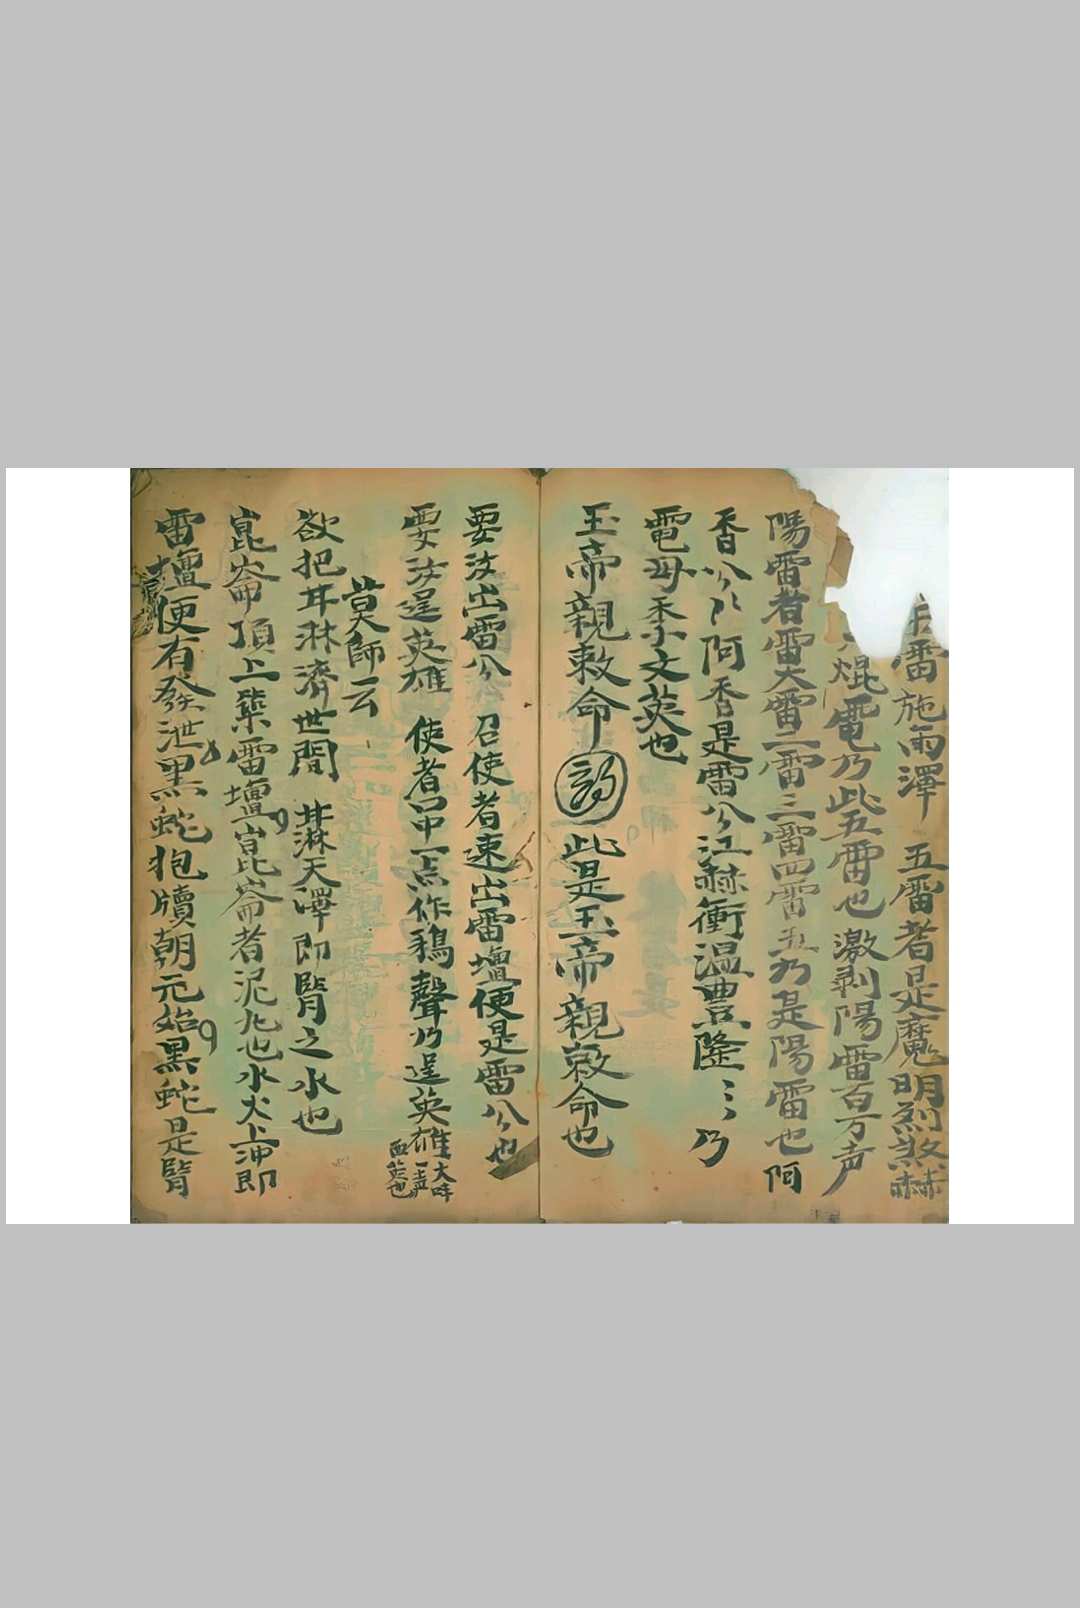 雷施雨澤 五雷者是魔明烈煞赫
焜電乃此五雷也激剥陽雷百万声
陽雷者雷大雷二雷三雷四雷五乃是陽雷也 阿
香公八阿香是雷公江赫衝温豊隆〻乃
電母秀文英也
玉帝親敕命 此是玉帝親敕命也
要汝出雷公 召使者速出雷壇便是雷公也
要汝逞英雄 使者口中一点作鴉聲乃逞英雄
莫師云
欲把耳淋濟世間 淋天澤即腎之水也
崑崙頂上築雷壇 崑崙者泥丸也水火上冲即
雷壇便有發泄黑蛇抱牘朝元始黑蛇是腎